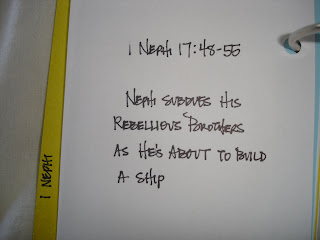 1 NEPHI 17:48-55
NEPHI SUBDUES HIS
REBELLIOUS BROTHERS
AS HE'S ABOUT TO BUILD
A SHIP
1 NEPHI